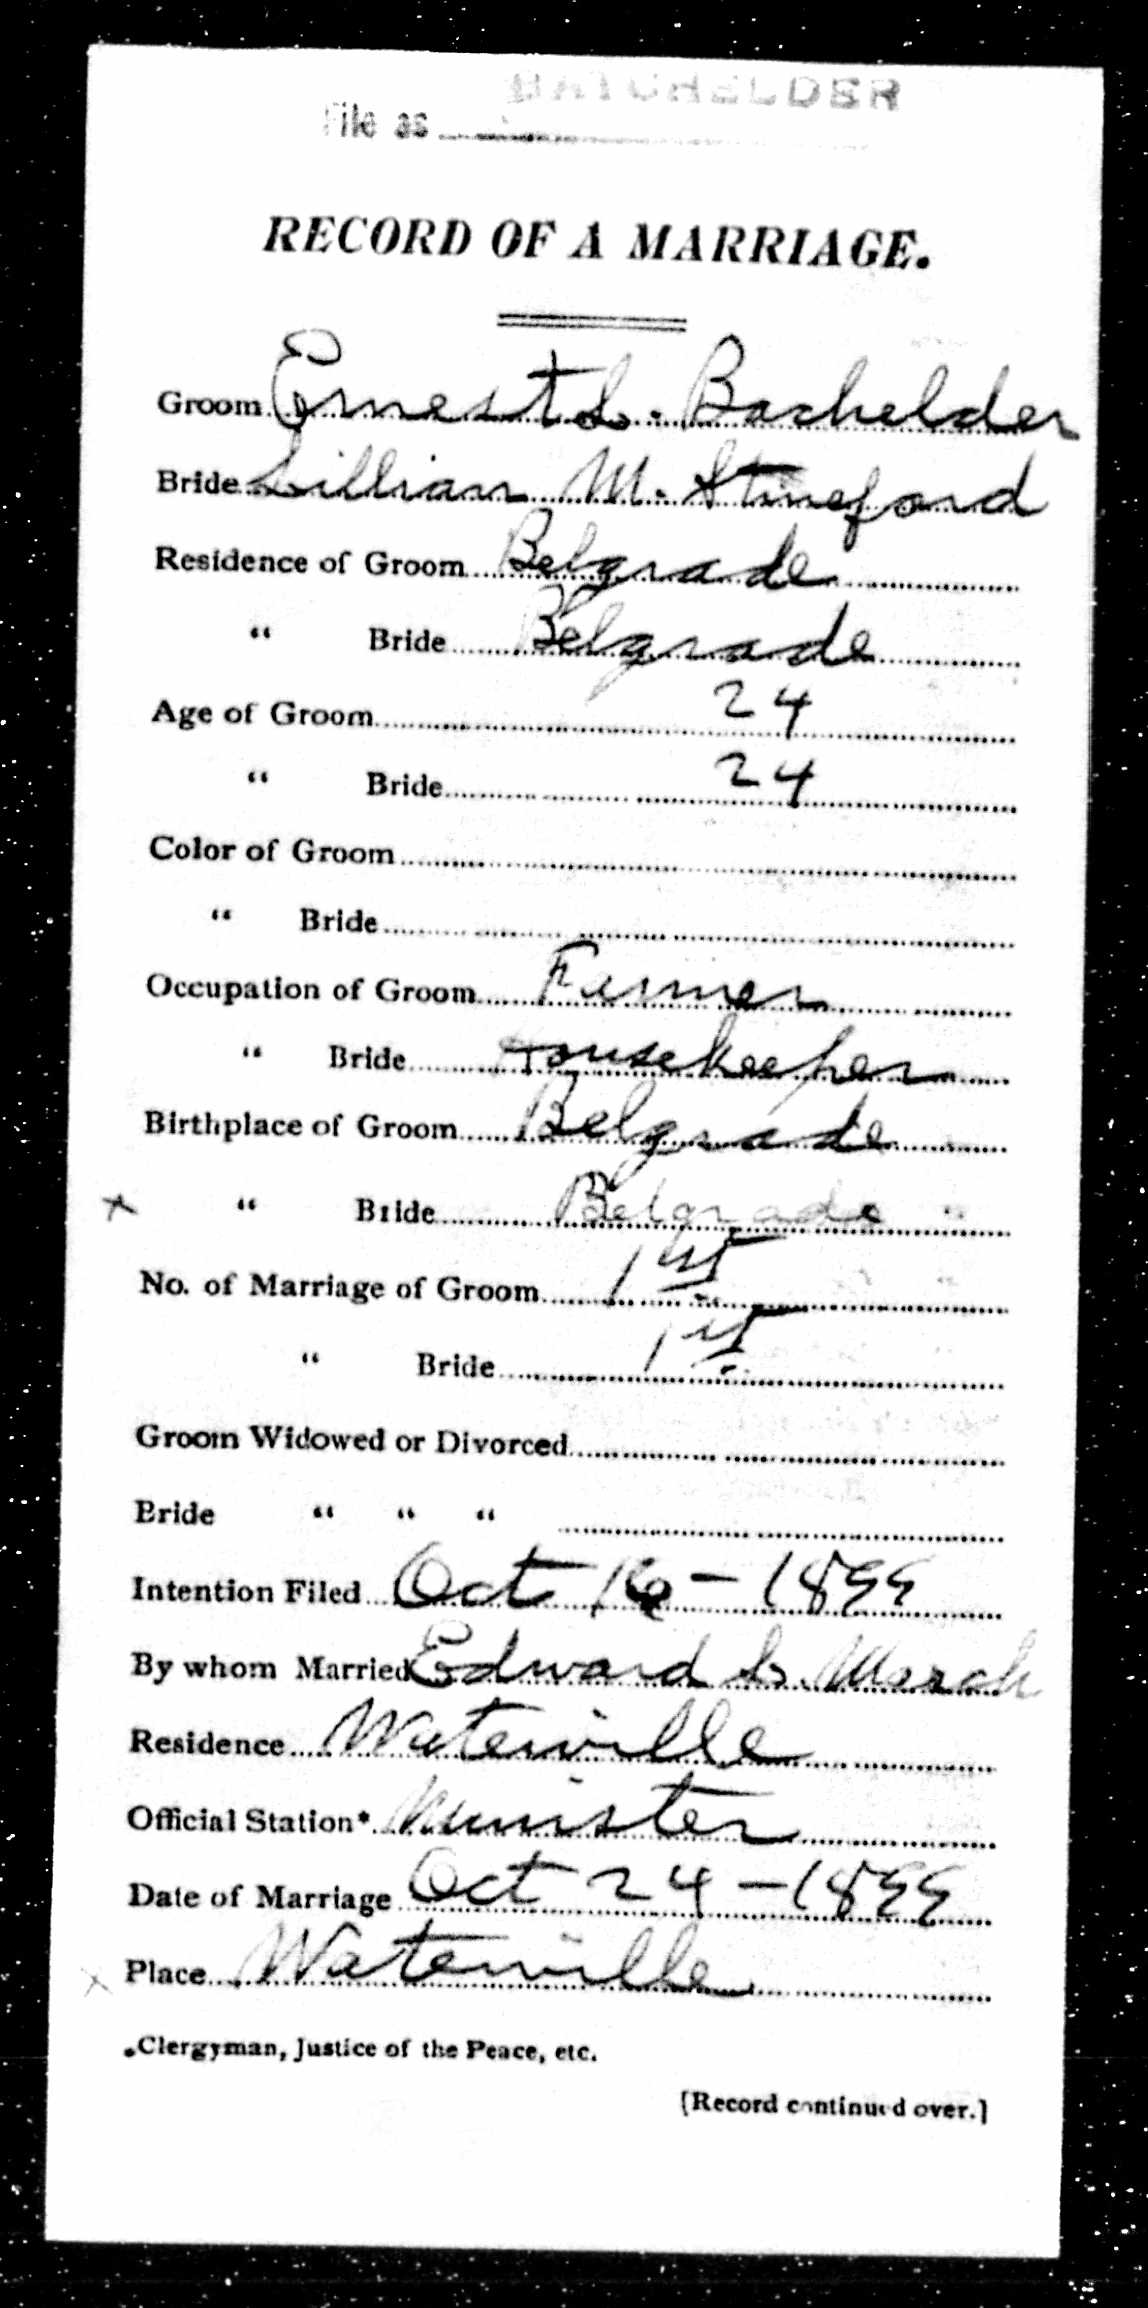 BATCHELDER
File as
RECORD OF A MARRIAGE.
Groom Ernest L. Bachelder
Bride Lillian M. Stineford
Residence of Groom Belgrade
" Bride Belgrade
Age of Groom 24
" Bride 24
Color of Groom
" Bride
Occupation of Groom Farmer
" Bride Housekeeper
Birthplace of Groom Belgrade
x " Bride Belgrade "
No. of Marriage of Groom 1st
" Bride 1st
Groom Widowed or Divorced
Bride " " "
Intention Filed Oct 16 - 1899
By whom Married Edward L. Marsh
Residence Waterville
Official Station* Minister
Date of Marriage Oct 24 - 1899
x Place Waterville
*Clergyman, Justice of the Peace, etc.
[Record continued over.]